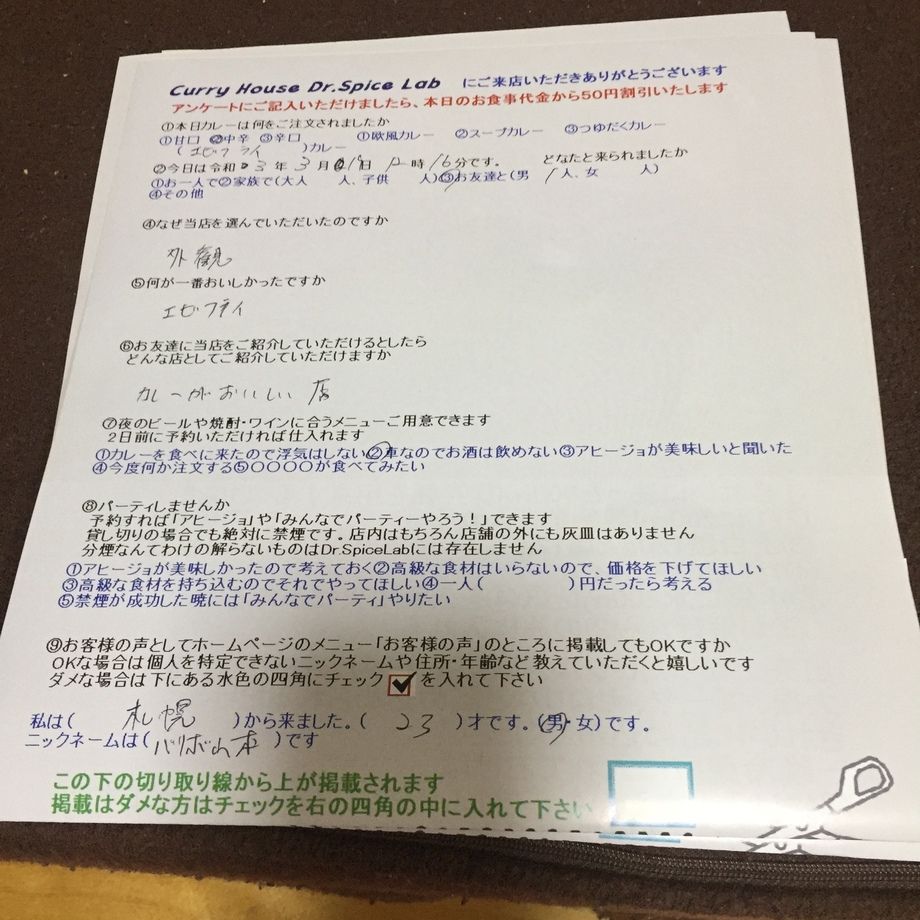 Curry House Dr.Spice Lab にご来店いただきありがとうございます
アンケートにご記入いただけましたら、本日のお食事代金から50円割引いたします
①本日カレーは何をご注文されましたか
①甘口 ②中辛 ③辛口 ①欧風カレー ②スープカレー ③つゆだくカレー
(エビフライ)カレー
②今日は令和 3年 3月 日 12時16分です。 どなたと来られましたか
①お一人で②家族で(大人 人、子供 人)③お友達と(男 1人、女 人)
④その他
④なぜ当店を選んでいただいたのですか
外観
⑤何が一番おいしかったですか
エビフライ
⑥お友達に当店をご紹介していただけるとしたら
どんな店としてご紹介していただけますか
カレーがおいしい店
⑦夜のビールや焼酎・ワインに合うメニューご用意できます
2日前に予約いただければ仕入れます
①カレーを食べに来たので浮気はしない②車なのでお酒は飲めない③アヒージョが美味しいと聞いた
④今度何か注文する⑤〇〇〇〇が食べてみたい
⑧パーティしませんか
予約すれば「アヒージョ」や「みんなでパーティーやろう!」できます
貸し切りの場合でも絶対に禁煙です。店内はもちろん店舗の外にも灰皿はありません
分煙なんてわけの解らないものはDr.SpiceLabには存在しません
①アヒージョが美味しかったので考えておく②高級な食材はいらないので、価格を下げてほしい
③高級な食材を持ち込むのでそれでやってほしい④一人( )円だったら考える
⑤禁煙が成功した暁には「みんなでパーティ」やりたい
⑨お客様の声としてホームページのメニュー「お客様の声」のところに掲載してもOKですか
OKな場合は個人を特定できないニックネームや住所・年齢など教えていただくと嬉しいです
ダメな場合は下にある水色の四角にチェック を入れて下さい
私は( 札幌 )から来ました。( 23 )才です。(男・女)です。
ニックネームは(バリボム本)です
この下の切り取り線から上が掲載されます
掲載はダメな方はチェックを右の四角の中に入れて下さい